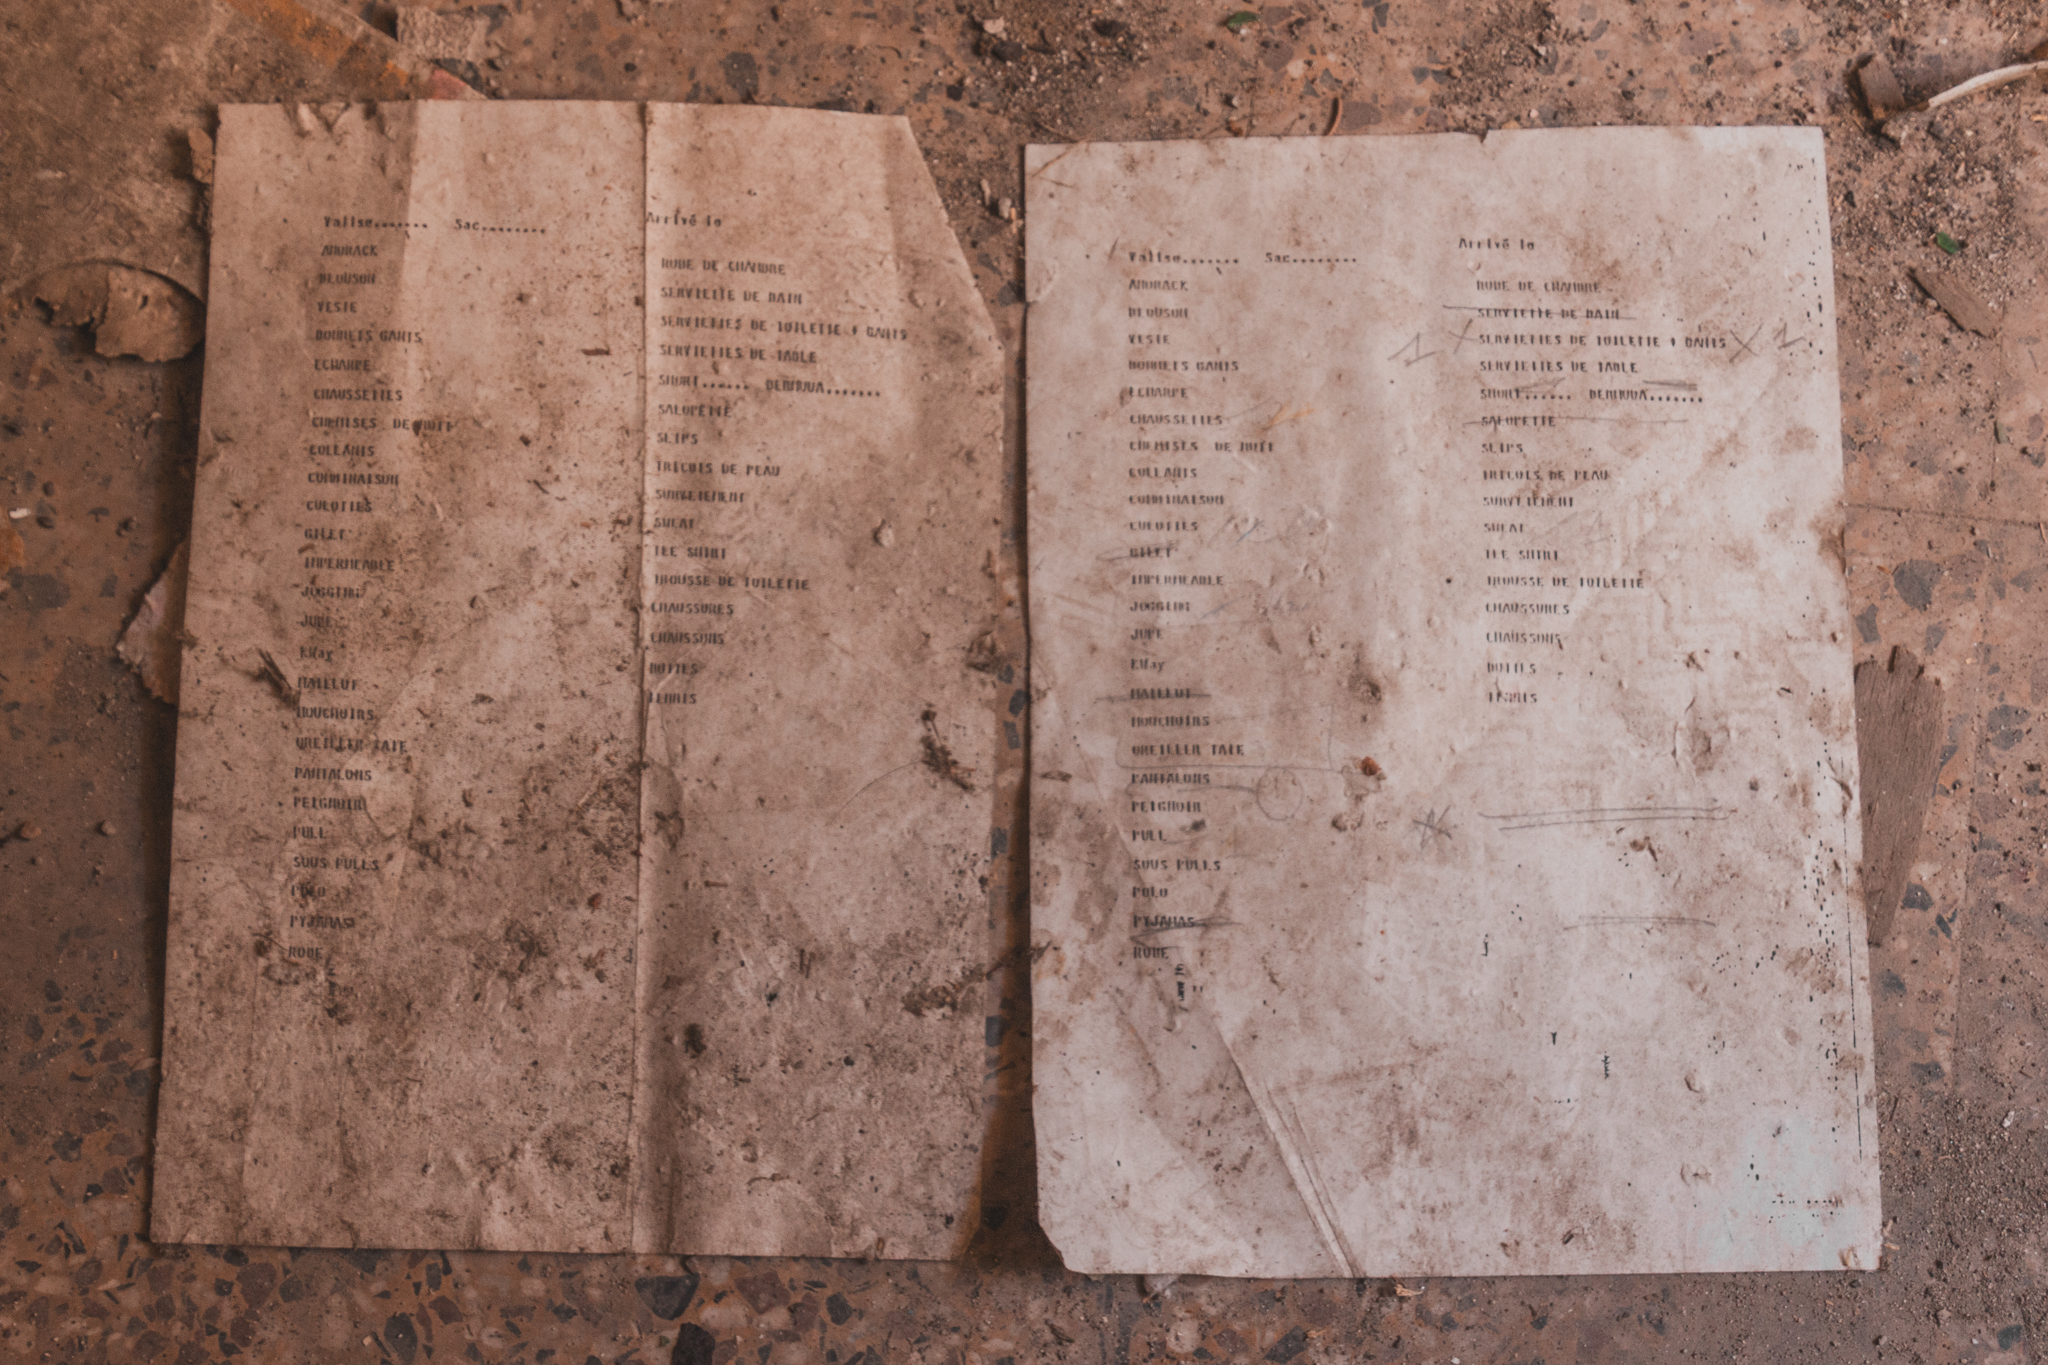 Valise....... Sac........
ANORACK
BLOUSON
VESTE
BONNETS GANTS
ECHARPE
CHAUSSETTES
CHEMISES DE NUIT
COLLANTS
COMBINAISON
CULOTTES
GILET
IMPERMEABLE
JOGGING
JUPE
KWay
MAILLOT
MOUCHOIRS
OREILLER TAIE
PANTALONS
PEIGNOIR
PULL
SOUS PULLS
POLO
PYJAMAS
ROBE
Arrivé le
ROBE DE CHAMBRE
SERVIETTE DE BAIN
SERVIETTES DE TOILETTE + GANTS
SERVIETTES DE TABLE
SHORT...... BERMUDA.......
SALOPETTE
SLIPS
TRICOTS DE PEAU
SURVETEMENT
SWEAT
TEE SHIRT
TROUSSE DE TOILETTE
CHAUSSURES
CHAUSSONS
BOTTES
TENNIS
Valise....... Sac........
ANORACK
BLOUSON
VESTE
BONNETS GANTS
ECHARPE
CHAUSSETTES
CHEMISES DE NUIT
COLLANTS
COMBINAISON
CULOTTES
GILET
IMPERMEABLE
JOGGING
JUPE
KWay
MAILLOT
MOUCHOIRS
OREILLER TAIE
PANTALONS
PEIGNOIR
PULL
SOUS PULLS
POLO
PYJAMAS
ROBE
Arrivé le
ROBE DE CHAMBRE
SERVIETTE DE BAIN
1 X SERVIETTES DE TOILETTE + GANTS X 1
SERVIETTES DE TABLE
SHORT...... BERMUDA.......
SALOPETTE
SLIPS
TRICOTS DE PEAU
SURVETEMENT
SWEAT
TEE SHIRT
TROUSSE DE TOILETTE
CHAUSSURES
CHAUSSONS
BOTTES
TENNIS